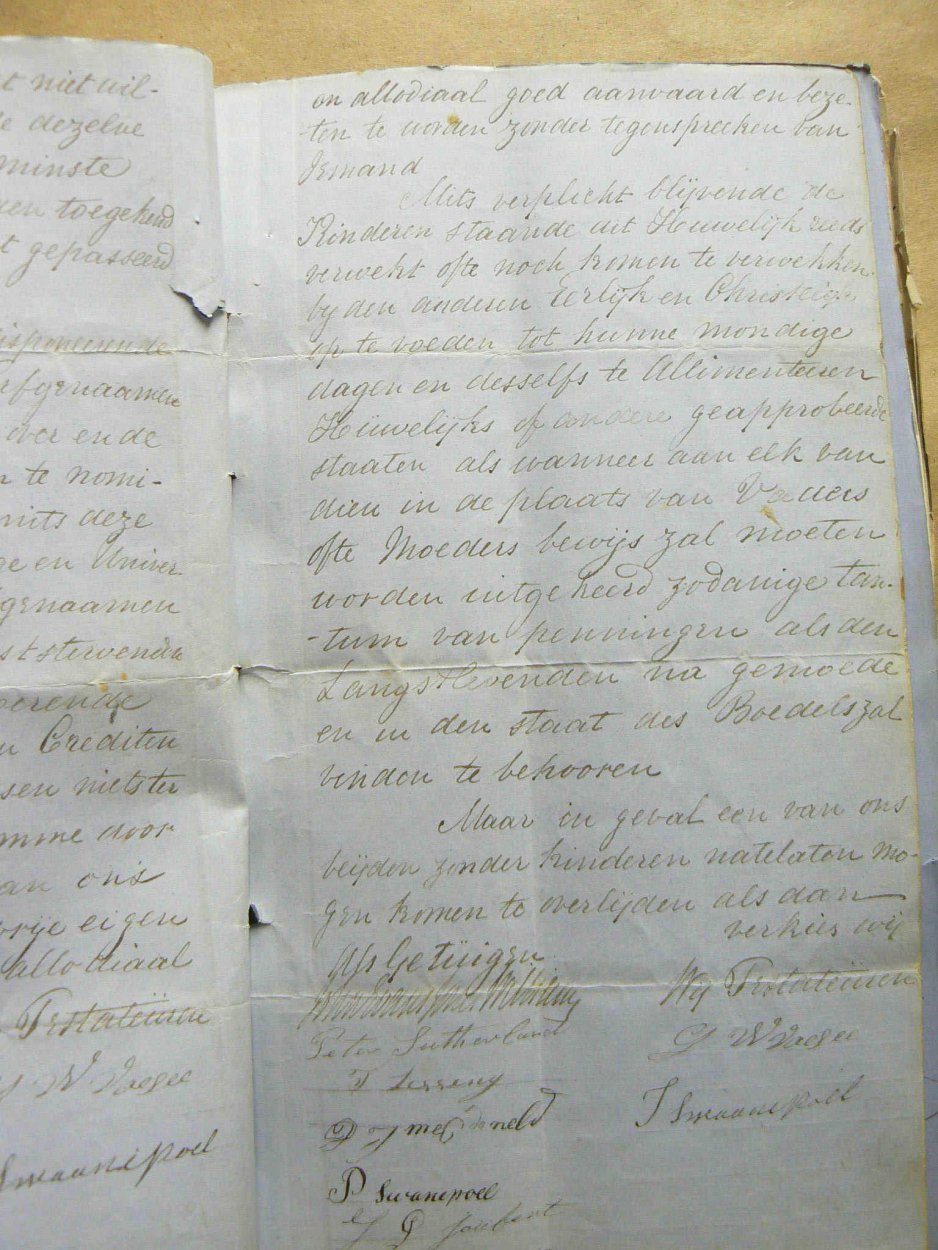 t niet wil-
e dezelve
minste
den toegekend
t gepasseerd
disponeerende
rfgenaamen
over en de
n te nomi-
mits deze
ge en Univer-
genaamen
ststervende
eerende
n Crediten
sen niets ter
omme door
an ons
vrije eigen
allodiaal
Testateüren
W
Swaanepoel
on allodiaal goed aanvaard en beze-
-ten te worden zonder tegenspreeken van
Iemand
Mits verplicht blijvende de
Kinderen staande dit Heuwelijk reeds
verwekt ofte noch komen te verwekken
by den anderen Eerlijk en Christelijk
op te voeden tot hunne mondige
dagen en desselfs te Allimenteeren
Heüwelijks of andere geapprobeerde
staaten als wanneer aan elk van
dien in de plaats van Vaders
ofte Moeders bewijs zal moeten
worden uitgekeerd zodanige tan-
-tum van penningen als den
Langstlevenden na gemoede
en in den staat des Boedels zal
vinden te behooren
Maar in geval een van ons
beijden zonder kinderen natelaten mo-
gen komen te overlijden als dan
verkies wij
Als Getüigen
Wij Testateüren
Peter Sutherland
W
T
D J
J Swaanepoel
P Swanepoel
G Joubert